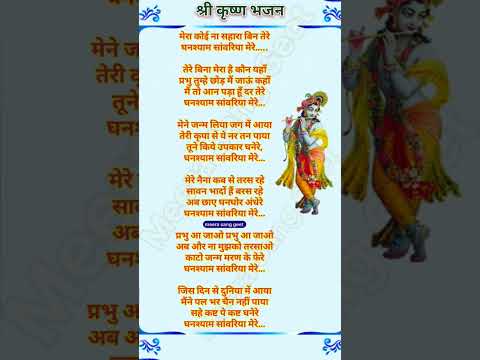 श्री कृष्ण भजन
मेरा कोई ना सहारा बिन तेरे
घनश्याम सांवरिया मेरे.....
तेरे बिना मेरा है कौन यहाँ
प्रभु तुम्हे छोड़ में जाऊं कहाँ
मैं तो आन पड़ा हूँ दर तेरे
घनश्याम सांवरिया मेरे...
मेने जन्म लिया जग में आया
तेरी कृपा से ये नर तन पाया
तूने किये उपकार घनेरे,
घनश्याम सांवरिया मेरे...
मेरे नैना कब से तरस रहे
सावन भादों हैं बरस रहे
अब छाए घनघोर अंधेरे
घनश्याम सांवरिया मेरे...
meera sang geet
प्रभु आ जाओ प्रभु आ जाओ
अब और ना मुझको तरसाओ
काटो जन्म मरण के फेरे
घनश्याम सांवरिया मेरे...
जिस दिन से दुनिया में आया
मैंने पल भर चैन नहीं पाया
सहे कष्ट पे कष्ट घनेरे
घनश्याम सांवरिया मेरे...